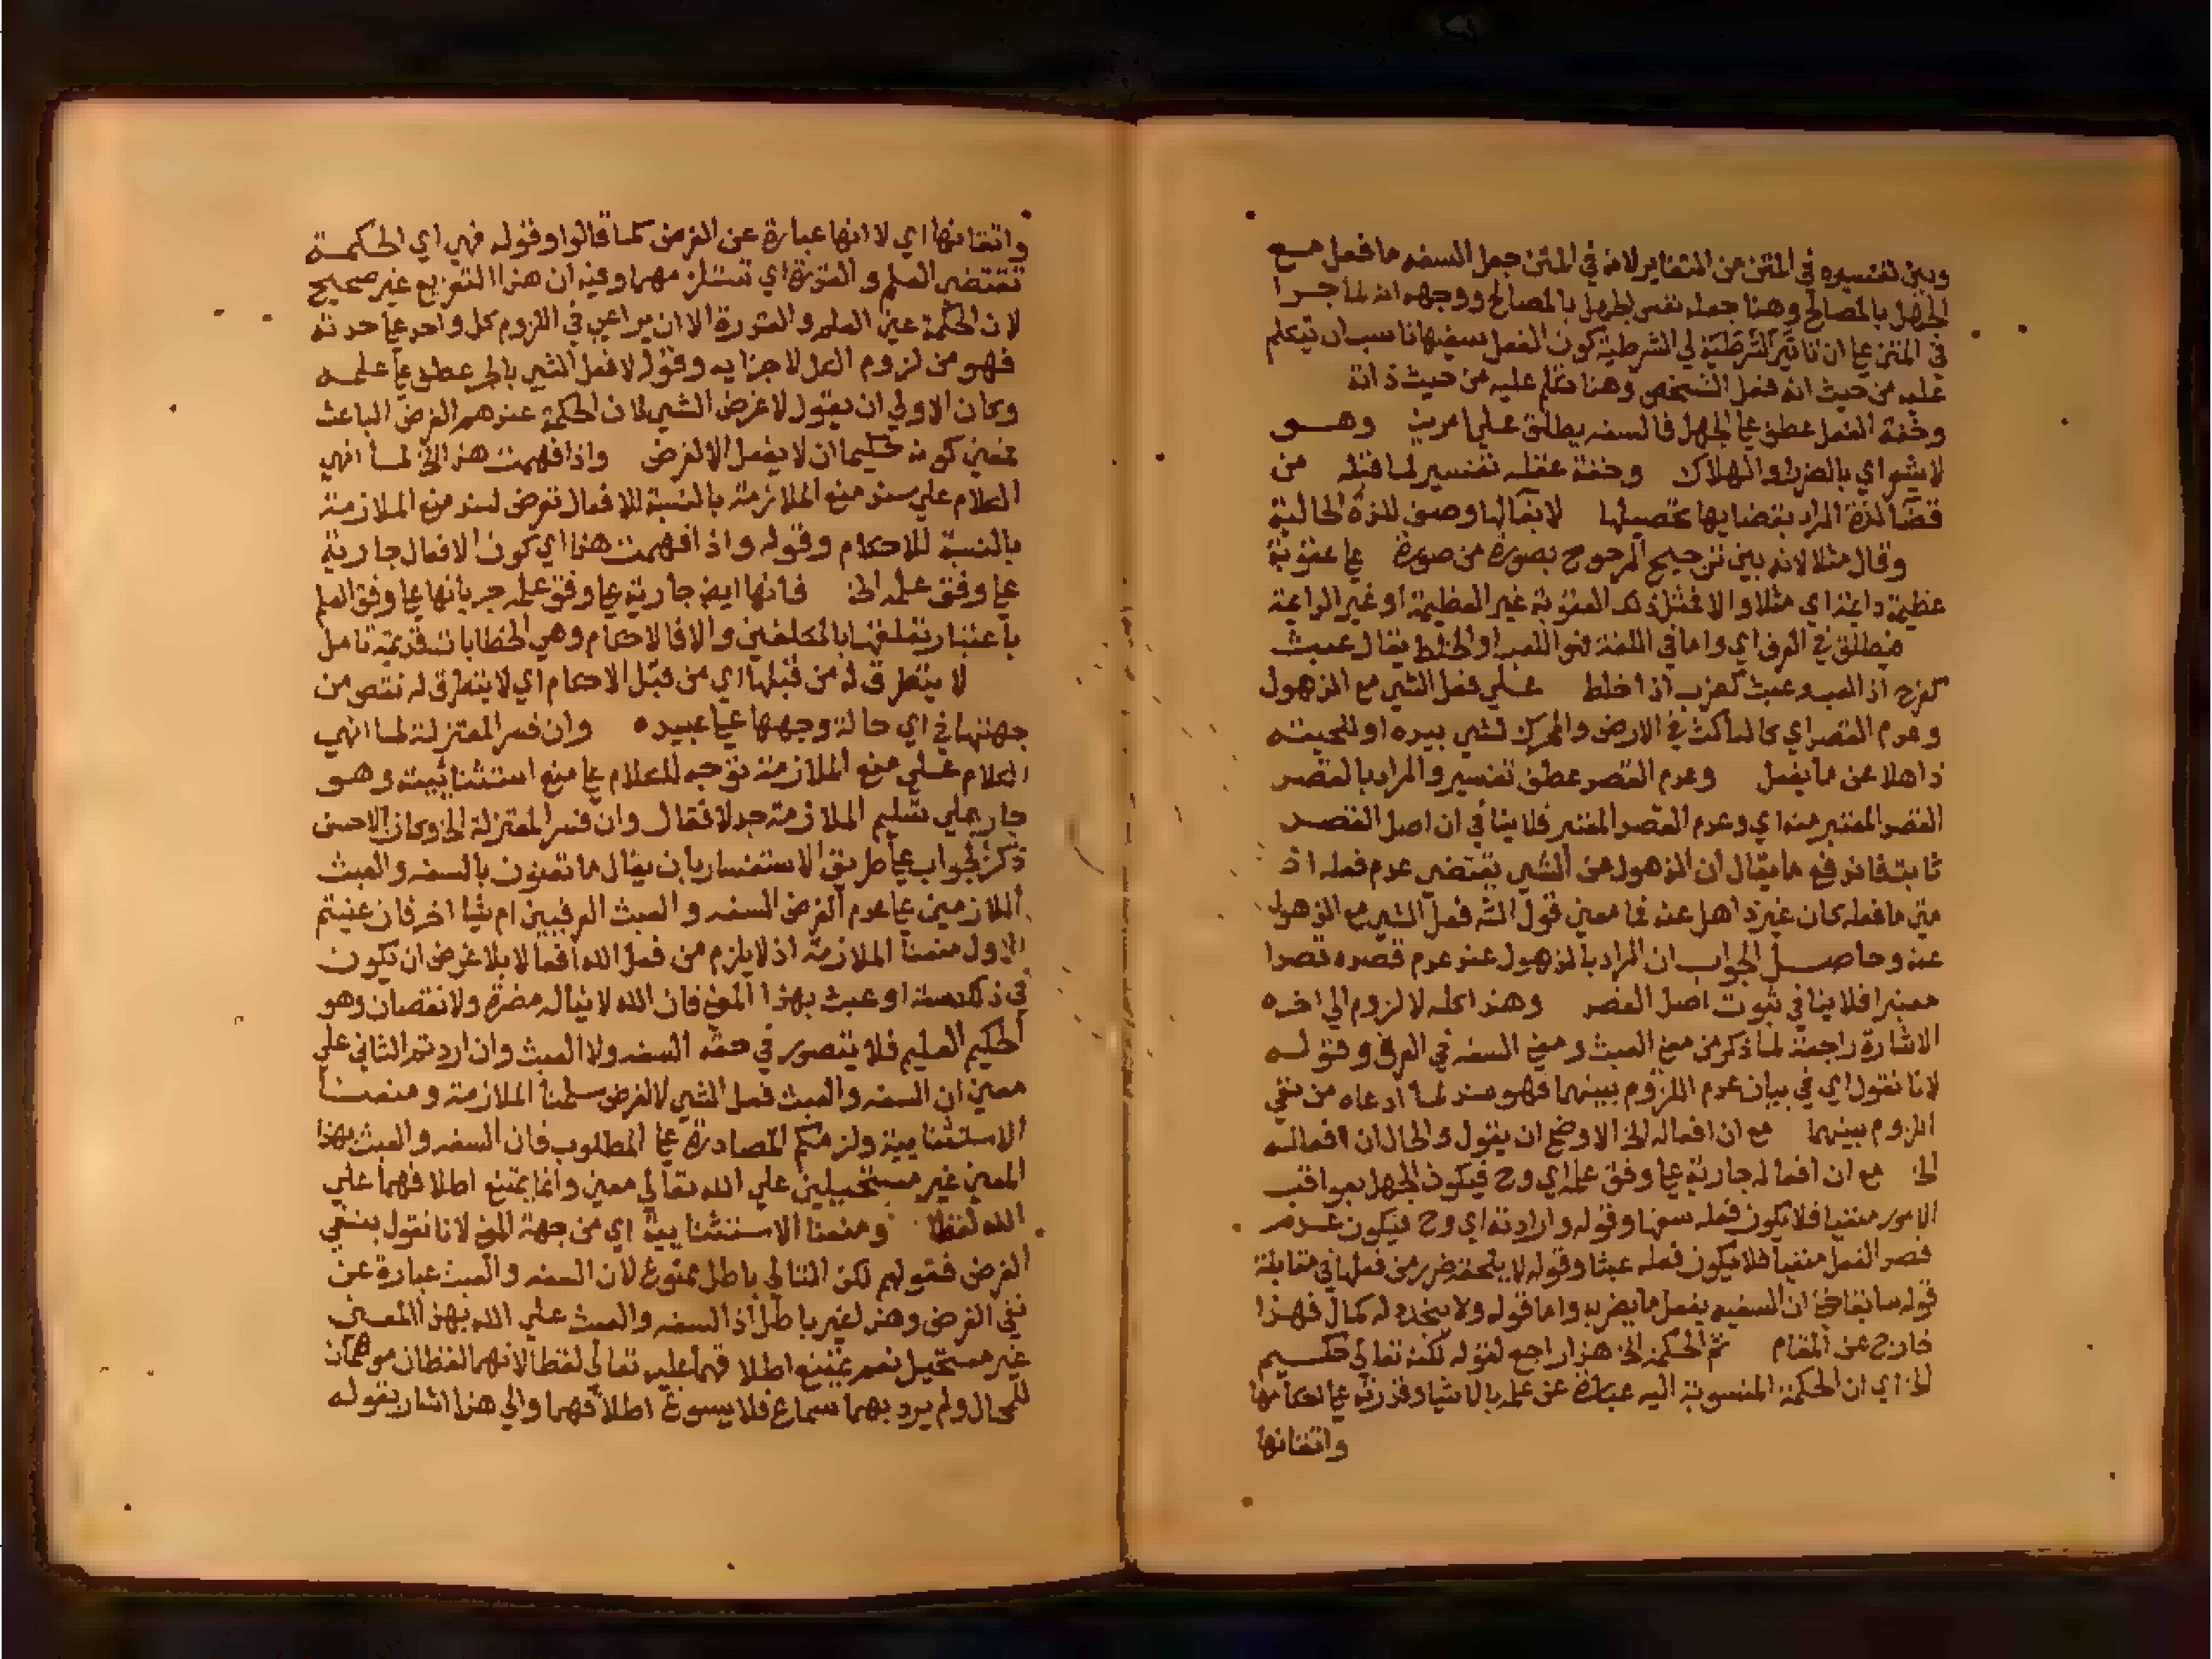 وبين تفسيره في المتن من التغاير لانه في المتن جعل السفه ما فعل مع
الجهل بالمصالح وهنا جعله نفس الجهل بالمصالح ووجهه انه لما جرا
في المتن علي ان تاثير الشرطية كون الفعل سفها ناسب ان يتكلم
عليه من حيث انه فعل الشخص وهنا تكلم عليه من حيث ذاته
وخفة العقل عطف علي الجهل فالسفه يطلق علي امرين وهو
لا يشعر اي بالضرر والهلاك وخفة عقله تفسير لما قبله من
قضا لذة المراد بقضايها تحصيلها لا بقا لها وصف للذة الحالية
وقال مثلا لانه بين ترجيح المرجوح بصورة من صورة علي عقوبة
عظيمة دايمة اي مثلا والا فمثل ذلك العقوبة غير العظيمة او غير الدايمة
فيطلق في العرف اي واما في اللغة فهو اللعب او الخلط يقال عبث
كفرح اذا لعب وعبث كضرب اذا خلط علي فعل الشي مع الذهول
وعدم القصد اي كالناكث في الارض والمحرك لشي بيده او للحيته
ذاهلا عن ما يفعل وعدم القصد عطف تفسير والمراد بالقصد
القصد المعتبر منه اي وعدم القصد المعتبر فلا ينافي ان اصل القصد
ثابت فاندفع ما يقال ان الذهول عن الشي يقتضي عدم فعله اذ
متي ما فعله كان غير ذاهل عنه فما معني قول الش فعل الشي مع الذهول
عنه وحاصل الجواب ان المراد بالذهول عنه عدم قصده قصدا
معتبرا فلا ينافي ثبوت اصل القصد وهذا كله لا لزوم الي اخره
الاشارة راجعة لما ذكر من معني العبث ومعني السفه في العرف وقوله
لانا نقول اي في بيان عدم اللزوم بينهما فهو سند لما ادعاه من نفي
اللزوم بينهما مع ان افعاله الخ الاوضح ان يقول والحال ان افعاله
الخ مع ان افعاله جارية علي وفق علمه اي وح فيكون الجهل بعواقب
الامور منتفيا فلا يكون فعله سفها وقوله وارادته اي وح فيكون عدم
قصد الفعل منتفيا فلا يكون فعله عبثا وقوله لا يلحقه ضرر من فعلها في مقابلة
قوله سابقا ان السفيه يفعل ما يضر به واما قوله ولا يتجدد له كمال فهذا
خارج عن المقام ثم الحكمة الخ هذا راجع لقوله لكنه تعالي حكيم
الخ اي ان الحكمة المنسوبة اليه عبارة عن علمه بالاشيا وقدرته علي احكامها
واتقانها
واتقانها اي لا انها عبارة عن الغرض كما قالوا وقوله فهي اي الحكمة
تقتضي العلم والقدرة اي تستلزمهما وفيه ان هذا التفريع غير صحيح
لان الحكمة عين العلم والقدرة الا ان يراعي في اللزوم كل واحد علي حدته
فهو من لزوم الكل لاجزايه وقوله لا فعل الشي بالجر عطف علي علمه
وكان الاولي ان يقول لا غرض الشي لان الحكمة عندهم الغرض الباعث
فمعني كونه حكيما ان لا يفعل الا لغرض واذا فهمت هذا الخ لما انهي
الكلام علي سند منع الملازمة بالنسبة للافعال تعرض لسند منع الملازمة
بالنسبة للاحكام وقوله واذا فهمت هذا اي كون الافعال جارية
علي وفق علمه الخ فانها ايضا جارية علي وفق علمه جريانها علي وفق العلم
باعتبار تعلقها بالمكلفين والا فالاحكام وهي الخطابات قديمة تامل
لا يتطرق له من قبلها اي من قبل الاحكام اي لا يتطرق له نقص من
جهتها في اي حالة وجهها علي عبيده وان فسر المعتزلة لما انهي
الكلام علي منع الملازمة توجه للكلام علي منع استثنائيته وهو
جار علي تسليم الملازمة جدلا فقال وان فسر المعتزلة الخ وكان الاحسن
ذكر الجواب علي طريق الاستفسار بان يقال ما تعنون بالسفه والعبث
اللازمين علي عدم الغرض السفه والعبث العرفيين ام شيا اخر فان عنيتم
الاول منعنا الملازمة اذ لا يلزم من فعل الله افعالا بلا غرض ان يكون
في ذلك سفه او عبث بهذا المعني فان الله لا يناله مضرة ولا نقصان وهو
الحكيم العليم فلا يتصور في حقه السفه ولا العبث وان اردتم الثاني علي
معني ان السفه والعبث فعل الشي لا لغرض سلمنا الملازمة ومنعنا
الاستثنايية ولزمتكم المصادرة علي المطلوب فان السفه والعبث بهذا
المعني غير مستحيلين علي الله تعالي معني وانما يمتنع اطلاقهما علي
الله لفظا ومنعنا الاستثنايية اي من جهة المعني لانا نقول بنفي
الغرض فقولهم لكن التالي باطل ممنوع لان السفه والعبث عبارة عن
نفي الغرض وهذا غير باطل اذ السفه والعبث علي الله بهذا المعني
غير مستحيل نعم يمتنع اطلاقهما عليه تعالي لفظا لانهما لفظان موهمان
للمحال ولم يرد بهما سماع فلا يسوغ اطلاقهما والي هذا اشار بقوله